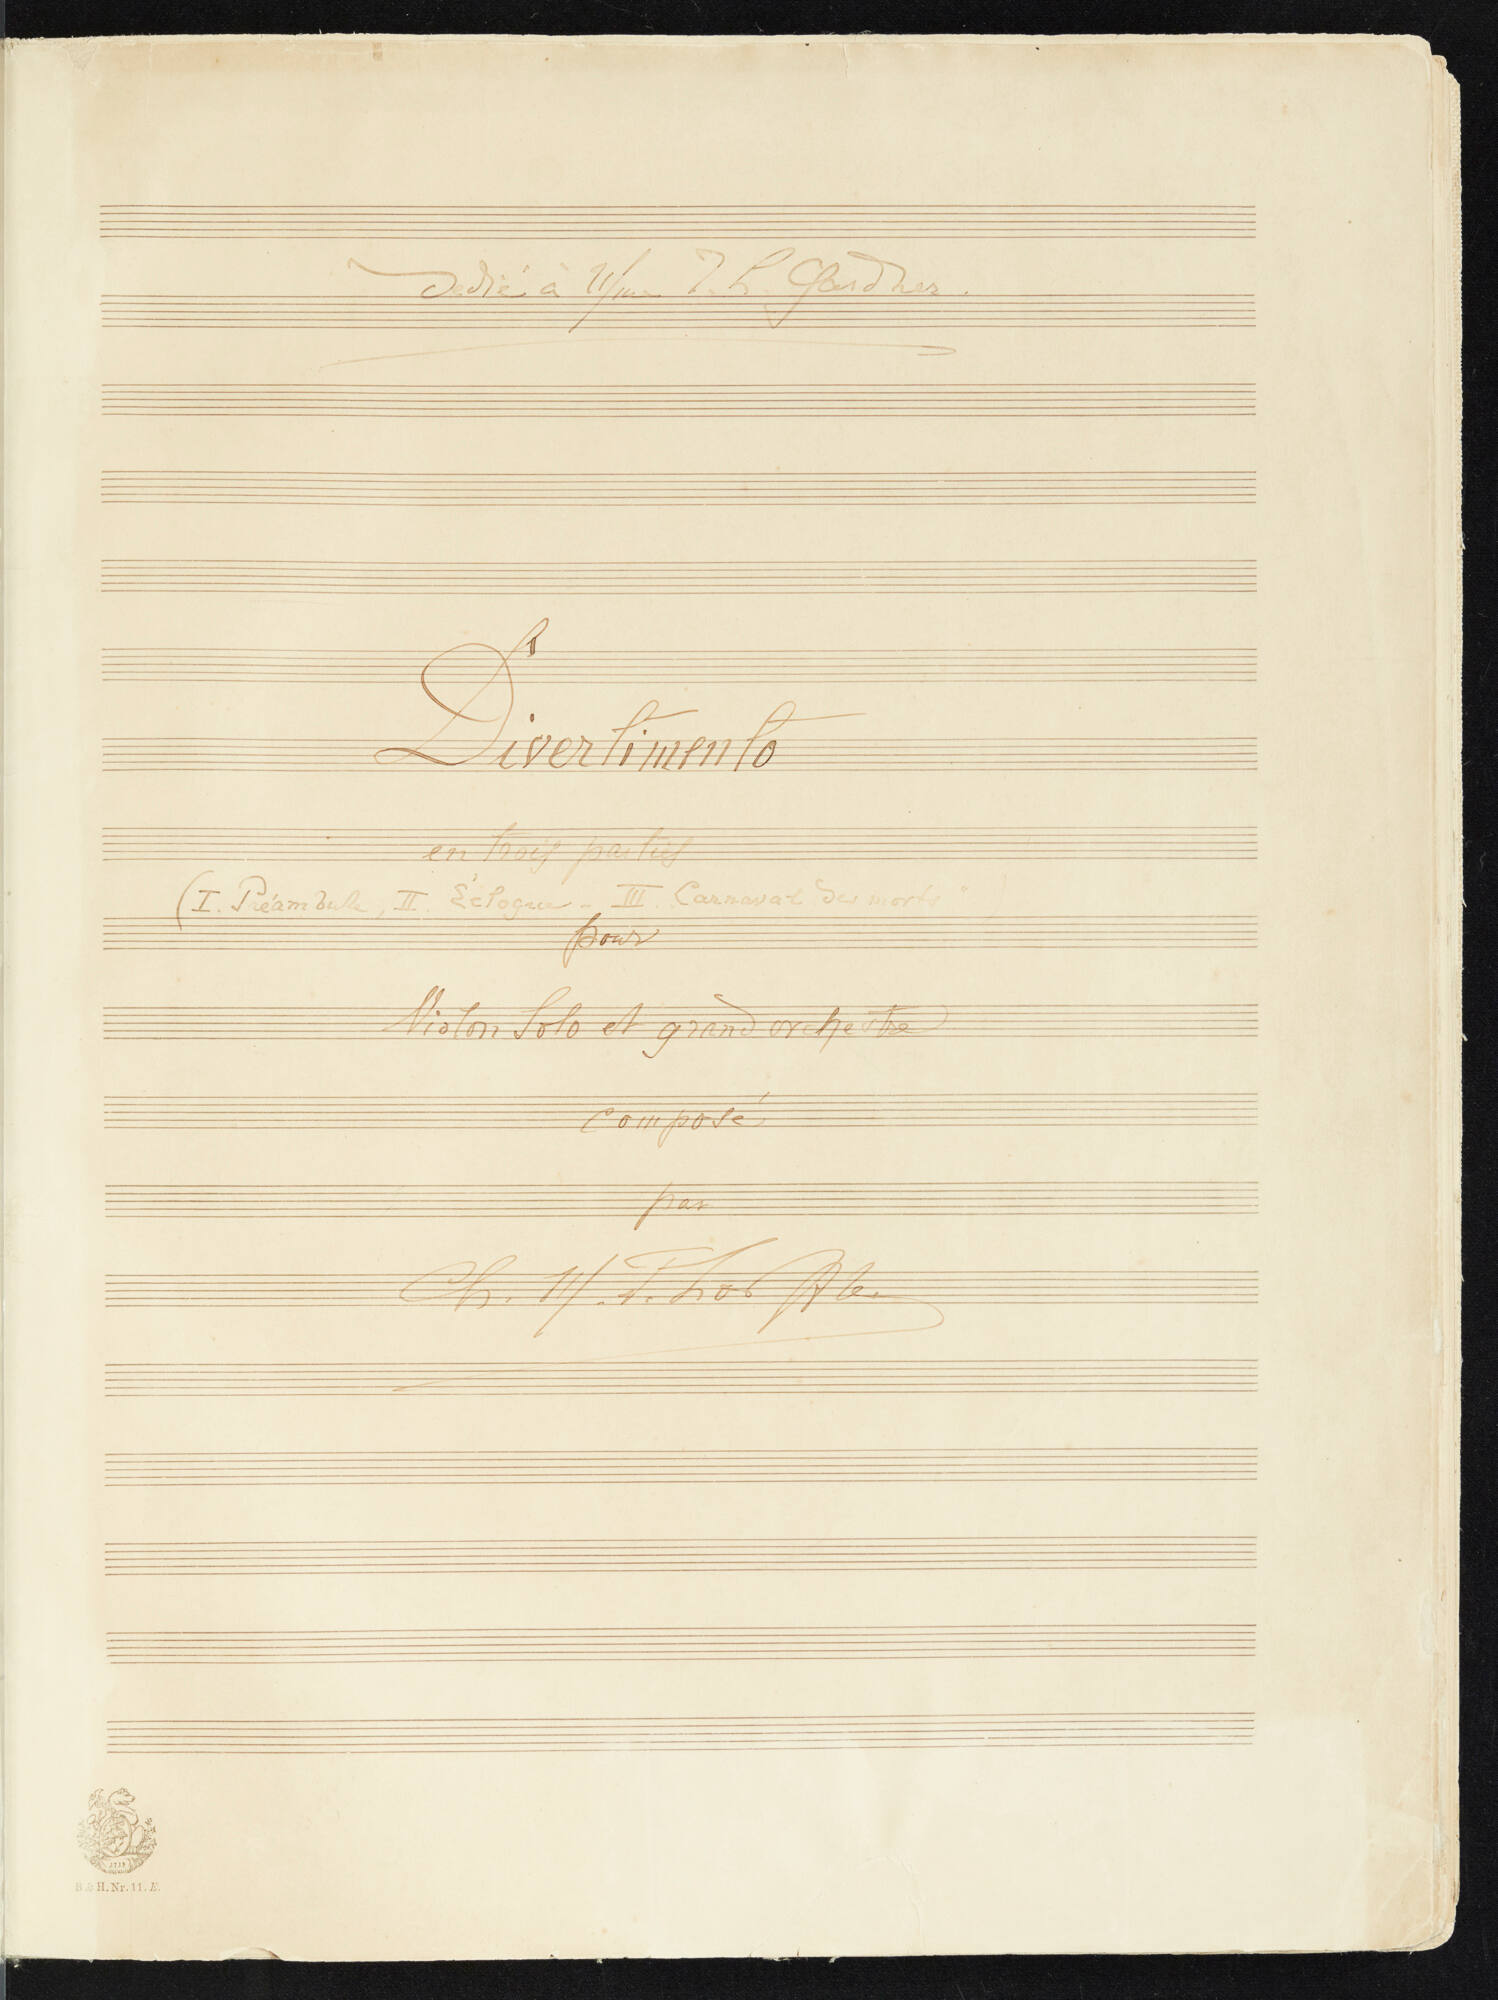 Dedié à Mme J. L. Gardner.
Divertimento
en trois parties
(I. Préambule, II. Éclogue - III. Carnaval des morts")
pour
Violon Solo et grand orchestre
composé
par
Ch. M. T. Loeffler
1719
B & H. Nr. 11. E.